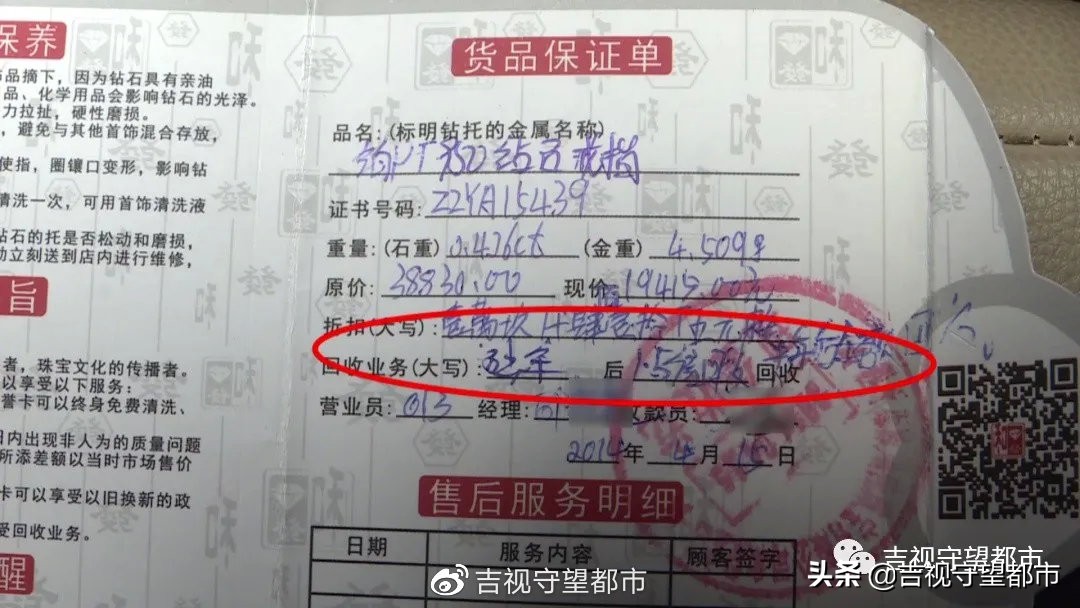 保养
品摘下，因为钻石具有亲油
品、化学用品会影响钻石的光泽。
力拉扯，硬性磨损。
，避免与其他首饰混合存放，
使指，圈镶口变形，影响钻
清洗一次，可用首饰清洗液
钻石的托是否松动和磨损，
动立刻送到店内进行维修，
旨
者，珠宝文化的传播者。
以享受以下服务：
誉卡可以终身免费清洗、
日内出现非人为的质量问题
所添差额以当时市场售价
卡可以享受以旧换新的政
受回收业务。
醒
货品保证单
品名:(标明钻托的金属名称)
铂PT950钻石戒指
证书号码: ZZYA15439
重量:(石重) 0.476ct (金重) 4.509g
原价: 38830.00 现价 19415.00元
折扣(大写): 壹万玖仟肆佰 伍元整
回收业务(大写): 五年 后 1.5倍 回收
营业员: 013 经理: 收款员:
2014年 4月 15日
售后服务明细
日期 服务内容 顾客签字
吉视守望都市
吉视守望都市
头条@吉视守望都市